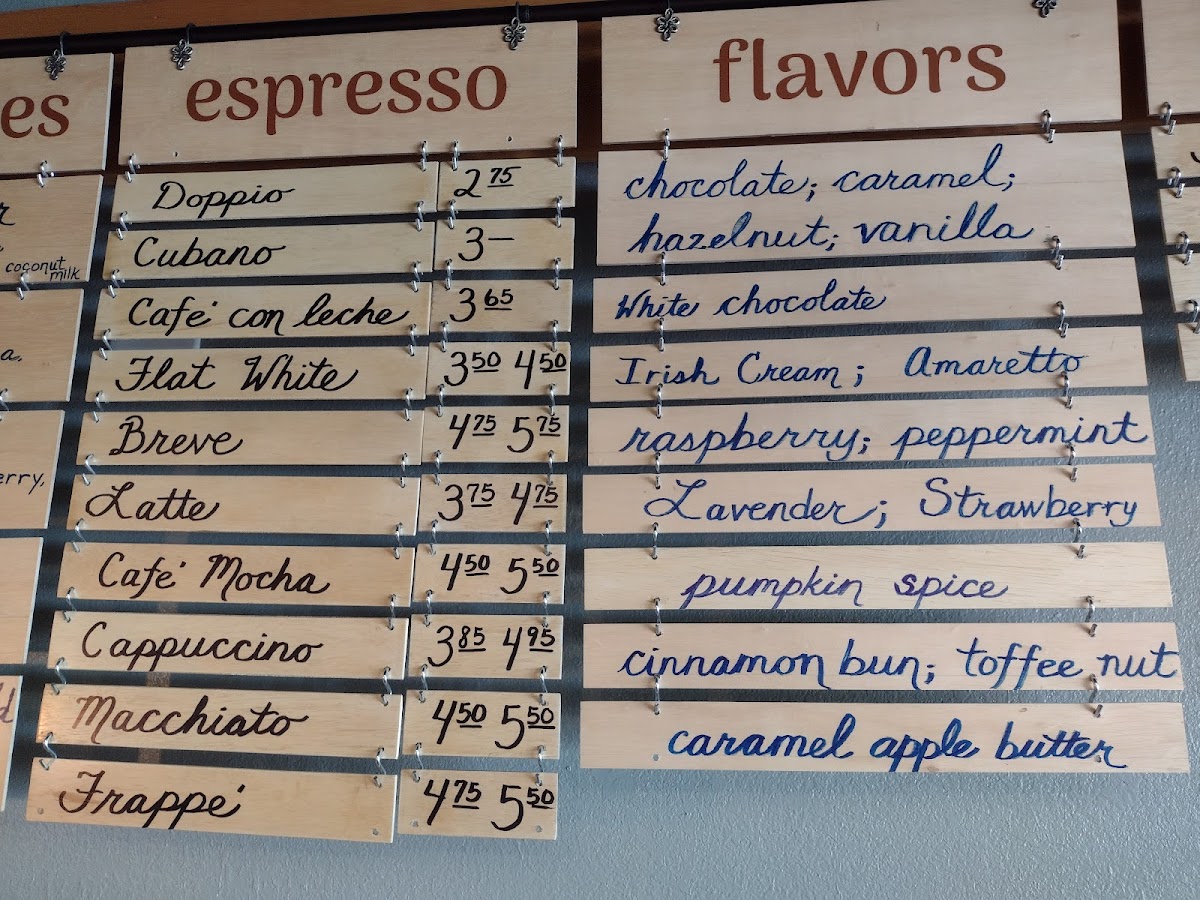 es
coconut
milk
a.
erry,
espresso
Doppio 2 75
Cubano 3—
Café con leche 3 65
Flat White 3 50 4 50
Breve 4 75 5 75
Latte 3 75 4 75
Café Mocha 4 50 5 50
Cappuccino 3 85 4 95
Macchiato 4 50 5 50
Frappé 4 75 5 50
flavors
chocolate; caramel;
hazelnut; vanilla
White chocolate
Irish Cream; Amaretto
raspberry; peppermint
Lavender; Strawberry
pumpkin spice
cinnamon bun; toffee nut
caramel apple butter